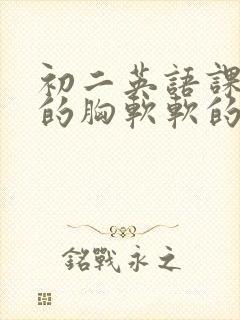 初二英語課
的胸軟軟的
銘戰永之